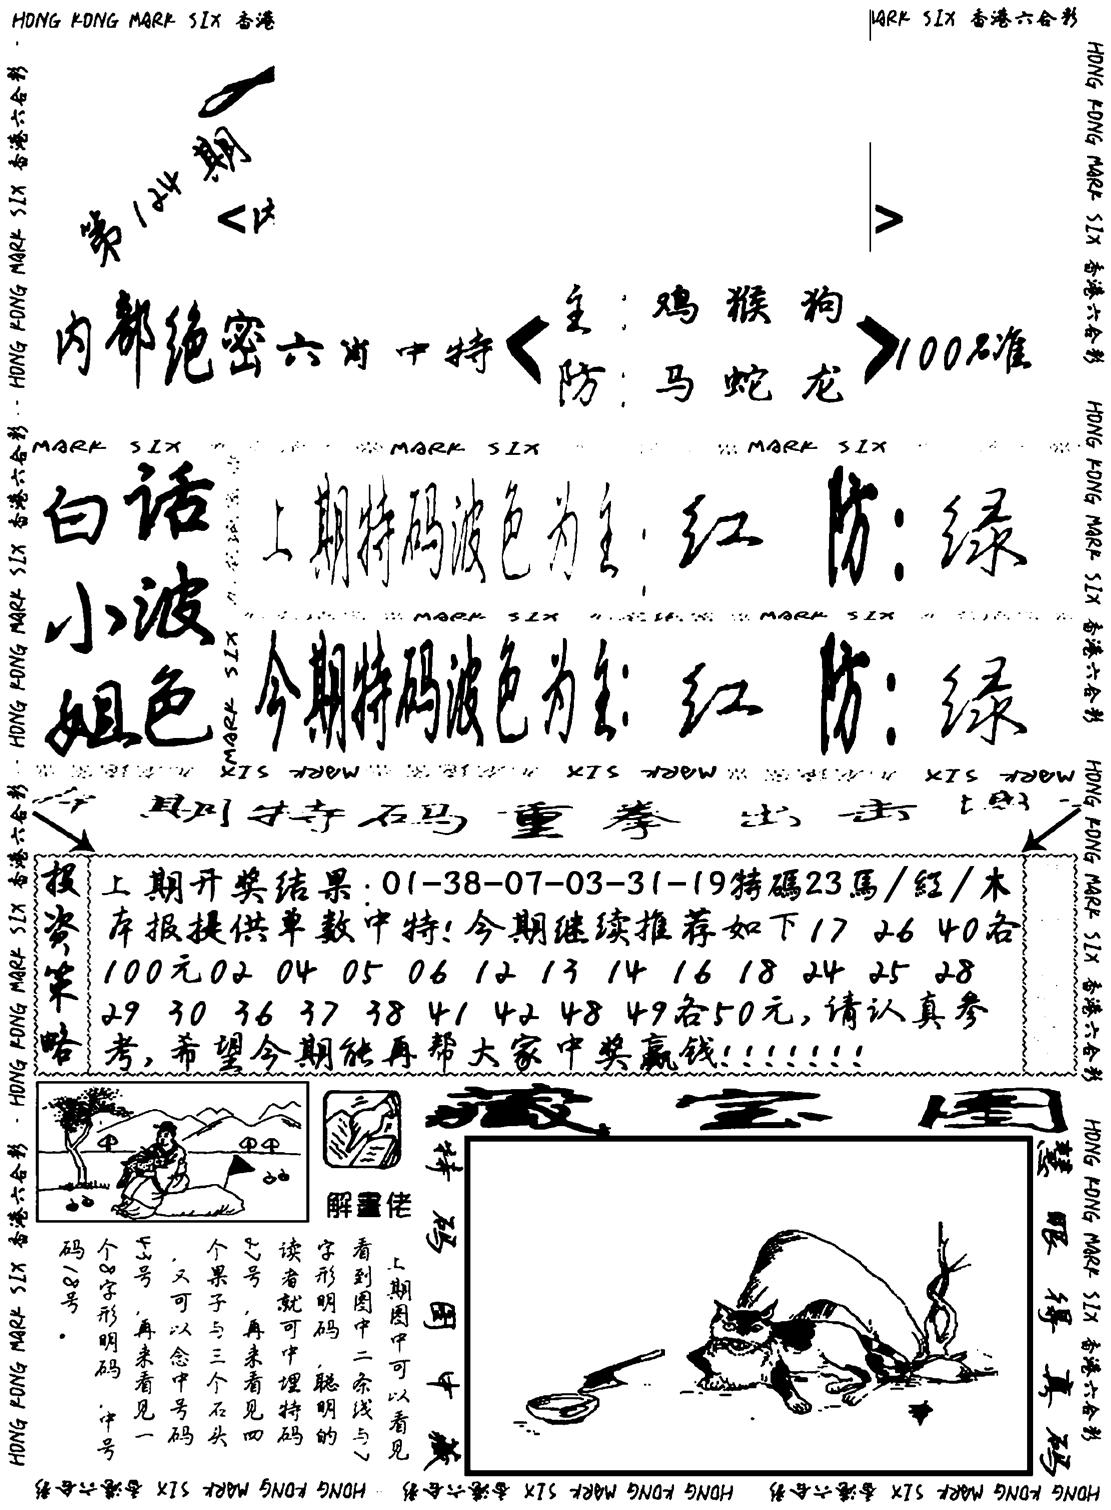 HONG KONG MARK SIX 香港
MARK SIX 香港六合彩
第124期
<
>
内部绝密六肖中特
主:鸡猴狗
防:马蛇龙
100%准
MARK SIX MARK SIX MARK SIX
白话
小波
姐色
上期特码波色为主:红 防:绿
MARK SIX MARK SIX
今期特码波色为主:红 防:绿
MARK SIX
MARK SIX MARK SIX MARK SIX
期特码重拳出击
投资策略
上期开奖结果:01-38-07-03-31-19特碼23馬/紅/木
本报提供单数中特!今期继续推荐如下17 26 40各
100元02 04 05 06 12 13 14 16 18 24 25 28
29 30 36 37 38 41 42 48 49各50元,请认真参
考,希望今期能再帮大家中奖赢钱!!!!!!!
解畫佬
上期图中可以看见
看到图中二条线与7
字形明码,聪明的
读者就可中埋特码
27号,再来看见四
个果子与三个石头
,又可以念中号码
43号,再来看见一
个8字形明码,中号
码18号.
藏宝图
特码图中藏
慧眼得真码
HONG KONG MARK SIX 香港六合彩
HONG KONG MARK SIX 香港六合彩
HONG KONG MARK SIX 香港六合彩
HONG KONG MARK SIX 香港六合彩
HONG KONG MARK SIX 香港六合彩
HONG KONG MARK SIX 香港六合彩
HONG KONG MARK SIX 香港六合彩
HONG KONG MARK SIX 香港六合彩
HONG KONG MARK SIX 香港六合彩
HONG KONG MARK SIX 香港六合彩
HONG KONG MARK SIX 香港六合彩